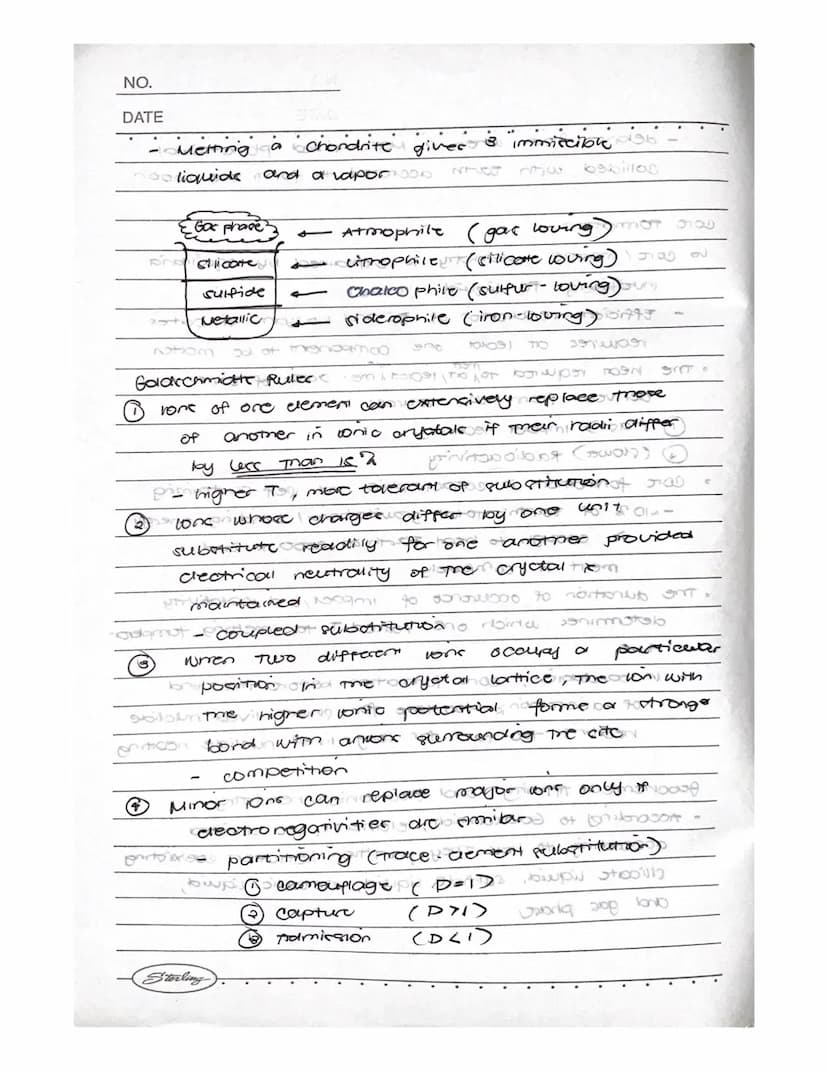 NO.
DATE
- Melting a chondrite gives 3 immiscible
liquids and a vapor
Gas phase ← Atmophile (gas loving)
silicate ← Litmophile (silicate loving)
sulfide ← Chalcophile (sulfur-loving)
Metallic ← siderophile (iron-loving)
Goldschmidts Rules
① Ions of one element can extensively replace those
of another in ionic crystals if their radii differ
by less than 15%
- higher T, more tolerant of substitution
② Ions whose charges differ by one unit
substitute readily for one another provided
electrical neutrality of the crystal is
maintained
- coupled substitution
③ When two different ions occupy a particular
position in the crystal lattice, the ion with
the higher ionic potential forms a stronger
bond with anions surrounding the site
- competition
④ Minor ions can replace major ions only if
electronegativities are similar
- partitioning (trace-element substitution)
① camouflage (D=1)
② capture (D>1)
③ Admission (D<1)
Sterling